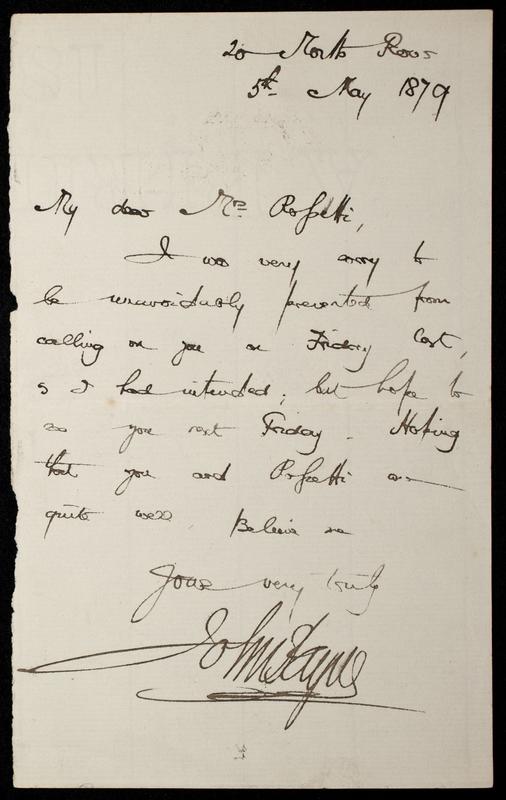 20 North Row
5th May 1879
My dear Mrs Rossetti,
I was very sorry to
be unavoidably prevented from
calling on you on Friday last,
as I had intended; but hope to
see you next Friday. Hoping
that you and Rossetti are
quite well Believe me
Yours very truly
John Payne